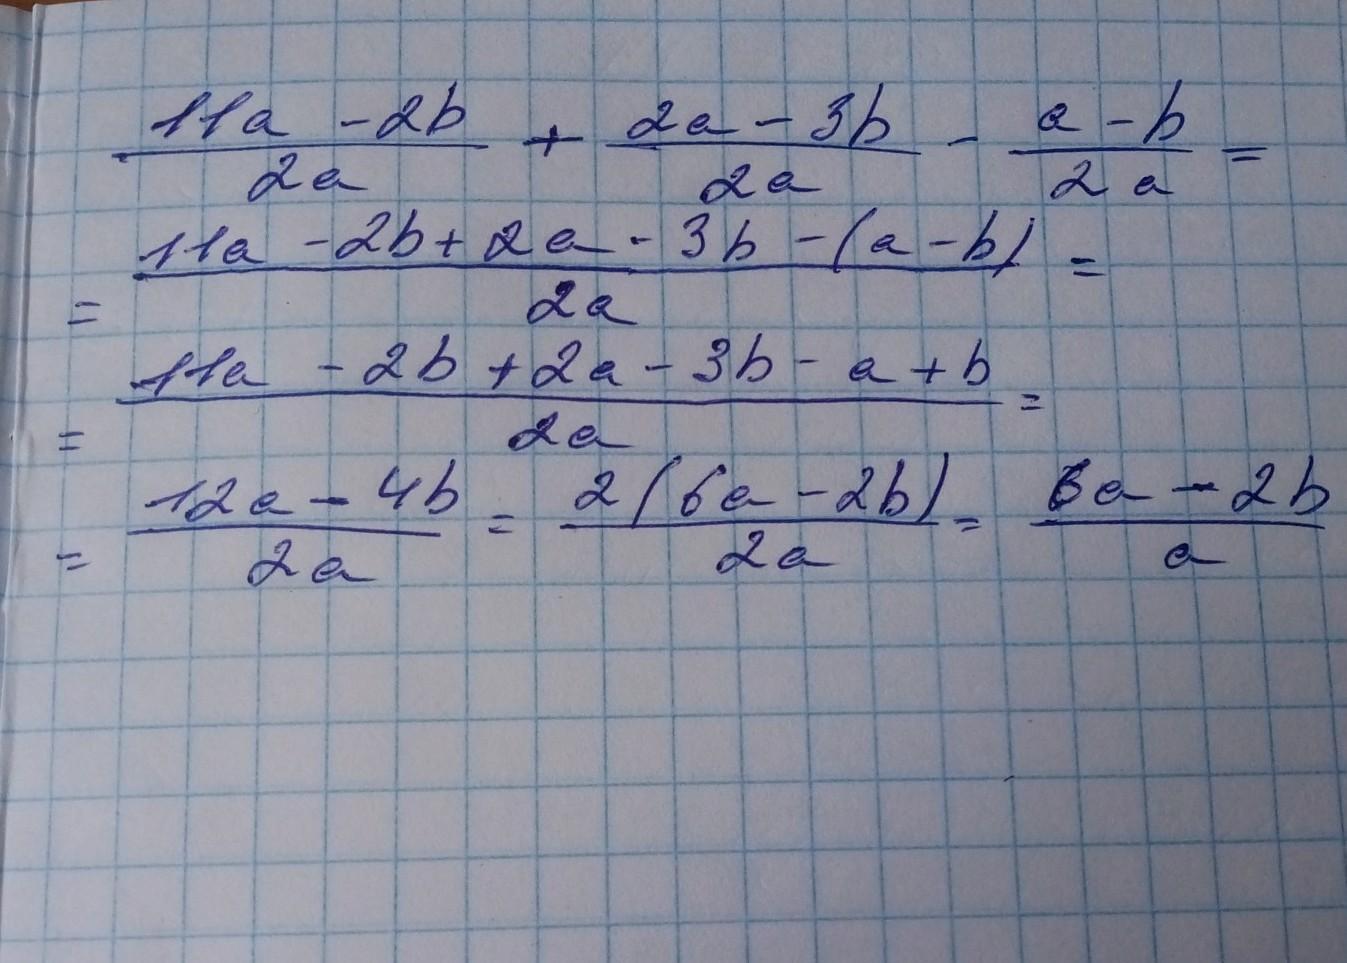 11a - 2b / 2a + 2a - 3b / 2a - a - b / 2a =
= 11a - 2b + 2a - 3b - (a - b) / 2a =
= 11a - 2b + 2a - 3b - a + b / 2a =
= 12a - 4b / 2a = 2(6a - 2b) / 2a = 6a - 2b / a